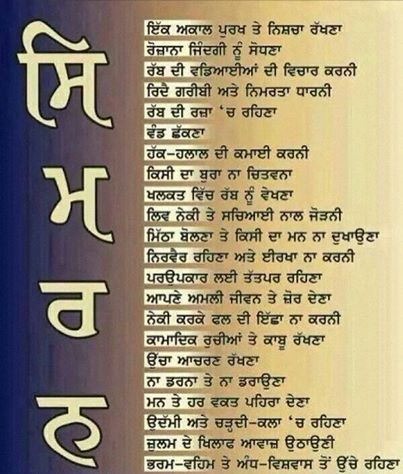 ਸਿਮਰਨ
ਇੱਕ ਅਕਾਲ ਪੁਰਖ ਤੇ ਨਿਸ਼ਚਾ ਰੱਖਣਾ
ਰੋਜ਼ਾਨਾ ਜਿੰਦਗੀ ਨੂੰ ਸੋਧਣਾ
ਰੱਬ ਦੀ ਵਡਿਆਈਆਂ ਦੀ ਵਿਚਾਰ ਕਰਨੀ
ਰਿਦੈ ਗਰੀਬੀ ਅਤੇ ਨਿਮਰਤਾ ਧਾਰਨੀ
ਰੱਬ ਦੀ ਰਜ਼ਾ 'ਚ ਰਹਿਣਾ
ਵੰਡ ਛੱਕਣਾ
ਹੱਕ-ਹਲਾਲ ਦੀ ਕਮਾਈ ਕਰਨੀ
ਕਿਸੀ ਦਾ ਬੁਰਾ ਨਾ ਚਿਤਵਨਾ
ਖਲਕਤ ਵਿੱਚ ਰੱਬ ਨੂੰ ਵੇਖਣਾ
ਲਿਵ ਨੇਕੀ ਤੇ ਸਚਿਆਈ ਨਾਲ ਜੋੜਨੀ
ਮਿੱਠਾ ਬੋਲਣਾ ਤੇ ਕਿਸੀ ਦਾ ਮਨ ਨਾ ਦੁਖਾਉਣਾ
ਨਿਰਵੈਰ ਰਹਿਣਾ ਅਤੇ ਈਰਖਾ ਨਾ ਕਰਨੀ
ਪਰਉਪਕਾਰ ਲਈ ਤੱਤਪਰ ਰਹਿਣਾ
ਆਪਣੇ ਅਮਲੀ ਜੀਵਨ ਤੇ ਜ਼ੋਰ ਦੇਣਾ
ਨੇਕੀ ਕਰਕੇ ਫਲ ਦੀ ਇੱਛਾ ਨਾ ਕਰਨੀ
ਕਾਮਾਦਿਕ ਰੁਚੀਆਂ ਤੇ ਕਾਬੂ ਰੱਖਣਾ
ਉੱਚਾ ਆਚਰਣ ਰੱਖਣਾ
ਨਾ ਡਰਨਾ ਤੇ ਨਾ ਡਰਾਉਣਾ
ਮਨ ਤੇ ਹਰ ਵਕਤ ਪਹਿਰਾ ਦੇਣਾ
ਉਦੱਮੀ ਅਤੇ ਚੜ੍ਹਦੀ-ਕਲਾ 'ਚ ਰਹਿਣਾ
ਜ਼ੁਲਮ ਦੇ ਖਿਲਾਫ ਆਵਾਜ਼ ਉਠਾਉਣੀ
ਭਰਮ-ਵਹਿਮ ਤੇ ਅੰਧ-ਵਿਸ਼ਵਾਸ ਤੋਂ ਉੱਚੇ ਰਹਿਣਾ